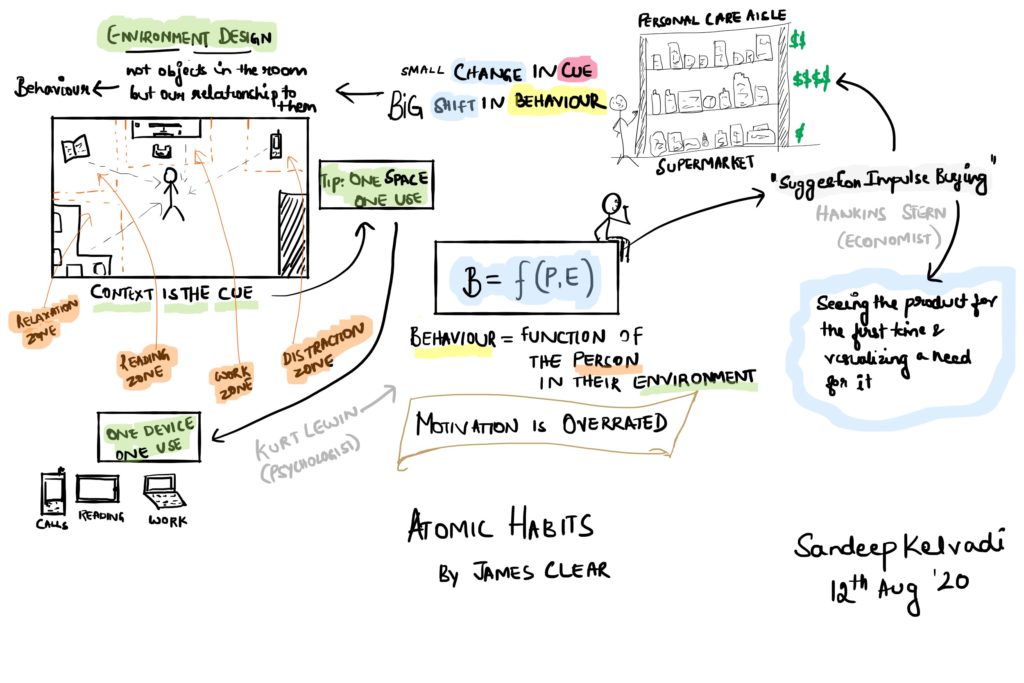 ENVIRONMENT DESIGN
Behaviour
not objects in the room
but our relationship to
them
SMALL CHANGE IN CUE
BIG SHIFT IN BEHAVIOUR
PERSONAL CARE AISLE
$$
$$$$
$
SUPERMARKET
TIP: ONE SPACE
ONE USE
CONTEXT IS THE CUE
RELAXATION
ZONE
READING
ZONE
WORK
ZONE
DISTRACTION
ZONE
ONE DEVICE
ONE USE
CALLS
READING
WORK
B = f(P,E)
BEHAVIOUR = FUNCTION OF
THE PERSON
IN THEIR ENVIRONMENT
KURT LEWIN
(PSYCHOLOGIST)
MOTIVATION IS OVERRATED
"Suggestion Impulse Buying"
HAWKINS STERN
(ECONOMIST)
Seeing the product for
the first time &
visualizing a need
for it
ATOMIC HABITS
BY JAMES CLEAR
Sandeep Kelvadi
12th Aug '20